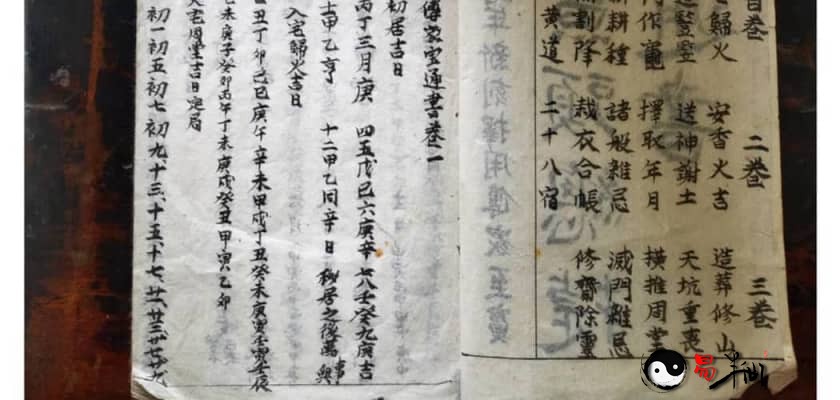 卷 二卷 三卷
歸火 安香火吉 造葬修山
竪 送神謝土 天坑重喪
作竈 擇取年月 横推周堂
耕種 諸般雜忌 滅門雜忌
割降 裁衣合帳 修齋除靈
黄道 二十八宿
傳家宝通書卷一
居吉日
丙丁三月庚 四五戊己六庚辛 七八壬癸九庚吉
甲乙亨 十二甲乙同辛日 移居之後萬事興
入宅歸火吉日
丑丁卯己巳庚午辛未甲戌丁丑癸未庚寅
未庚子癸卯丙午丁未庚戌癸丑甲寅乙卯
周堂吉日定局
初一初五初七初九、十三、十五、十七、廿一、廿三廿七廿九
易